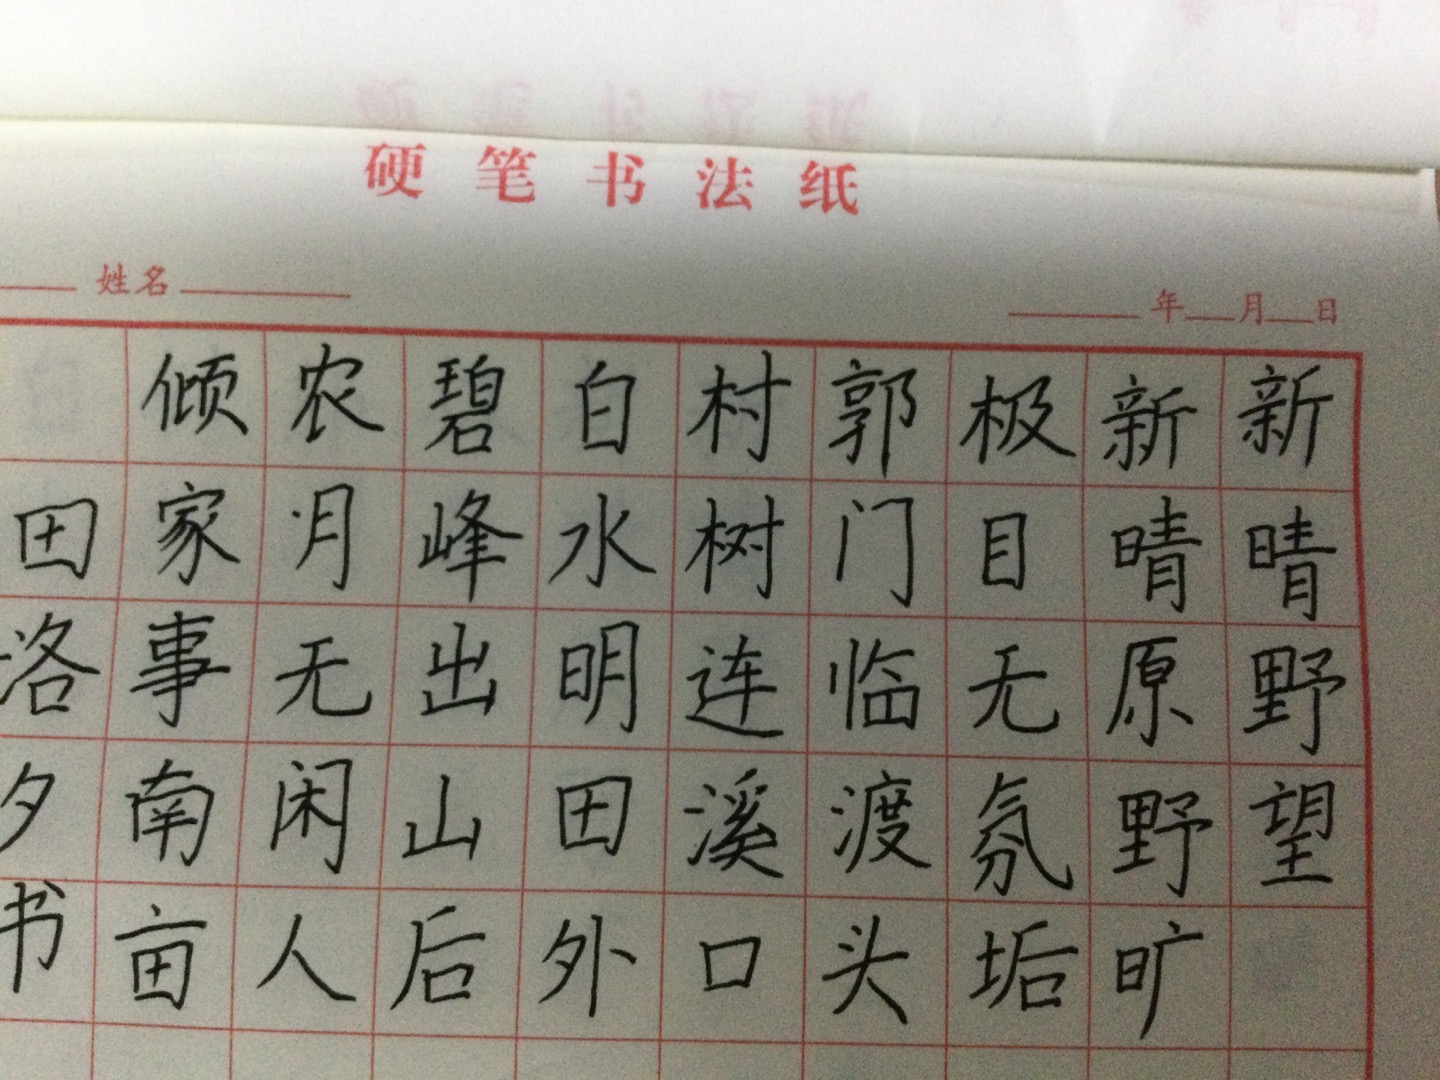 硬笔书法纸
姓名
年 月 日
新晴野望
新晴原野旷
极目无氛垢
郭门临渡头
村树连溪口
白水明田外
碧峰出山后
农月无闲人
倾家事南亩
田洛夕书